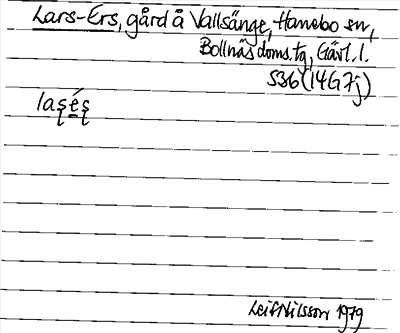 Lars-Ers, gård å Vallsänge, Hanebo sn,
Bollnäs doms. tg, Gävl. l.
536 (14G7j)
laʂéʂ
Leif Nilsson 1979